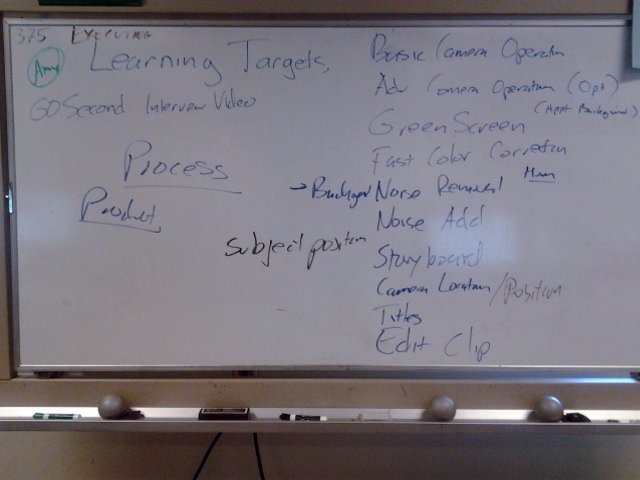 375 EXECUTING
Learning Targets
60 Second Interview Video
Process
Product
subject position
Basic Camera Operation
Adv Camera Operation (Opt)
Green Screen
Fast Color Correction
Noise Removal
Noise Add
Storyboard
Camera Location/Position
Titles
Edit Clip